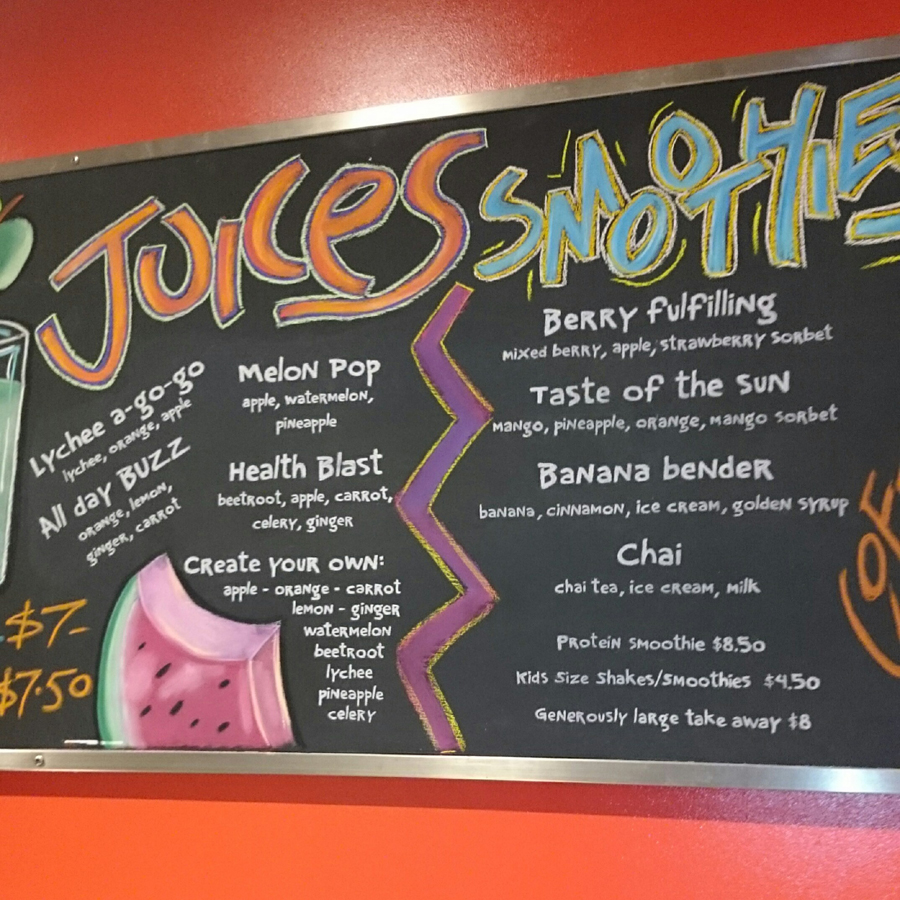 Juices
Lychee a-go-go
lychee, orange, apple
All day BUZZ
orange, lemon,
ginger, carrot
$7-
$7.50
Melon Pop
apple, watermelon,
pineapple
Health Blast
beetroot, apple, carrot,
celery, ginger
Create your own:
apple - orange - carrot
lemon - ginger
watermelon
beetroot
lychee
pineapple
celery
SMOOTHIE
Berry fulfilling
mixed berry, apple, strawberry sorbet
Taste of the sun
Mango, pineapple, orange, mango sorbet
Banana bender
banana, cinnamon, ice cream, golden syrup
Chai
chai tea, ice cream, milk
Protein smoothie $8.50
Kids size shakes/smoothies $4.50
Generously large take away $8